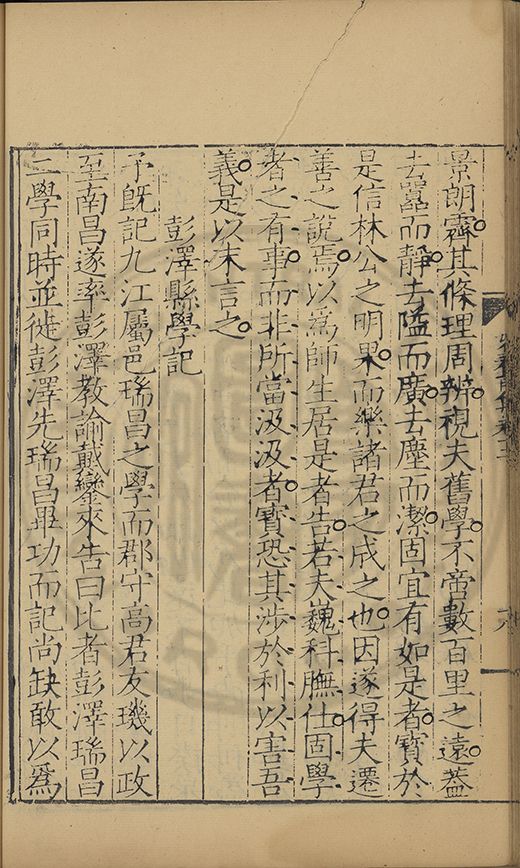 景朗霽其條理周辨視夫舊學不啻數百里之遠葢
去囂而靜去隘而廣去塵而潔固宜有如是者寳於
是信林公之明果而樂諸君之成之也因遂得夫遷
善之說焉以為師生居是者告若夫巍科膴仕固學
者之有事而非所當汲汲者寳恐其涉於利以害吾
義是以末言之
彭澤縣學記
予旣記九江屬邑瑞昌之學而郡守高君友璣以政
至南昌遂率彭澤教諭戴鑾來告曰比者彭澤瑞昌
二學同時並徙彭澤先瑞昌畢功而記尚缺敢以為